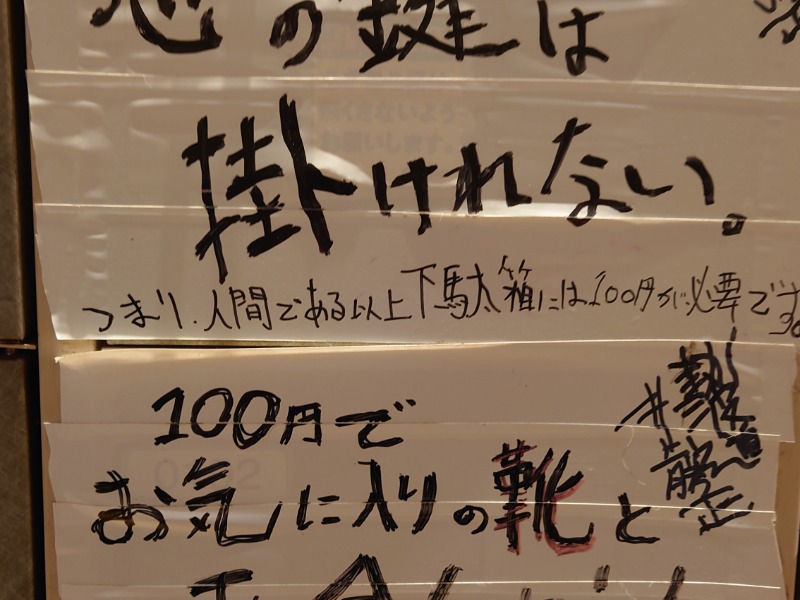 の鍵は
掛けれない。
つまり、人間である以上下駄箱には100円が必要です。
100円で
お気に入りの靴と